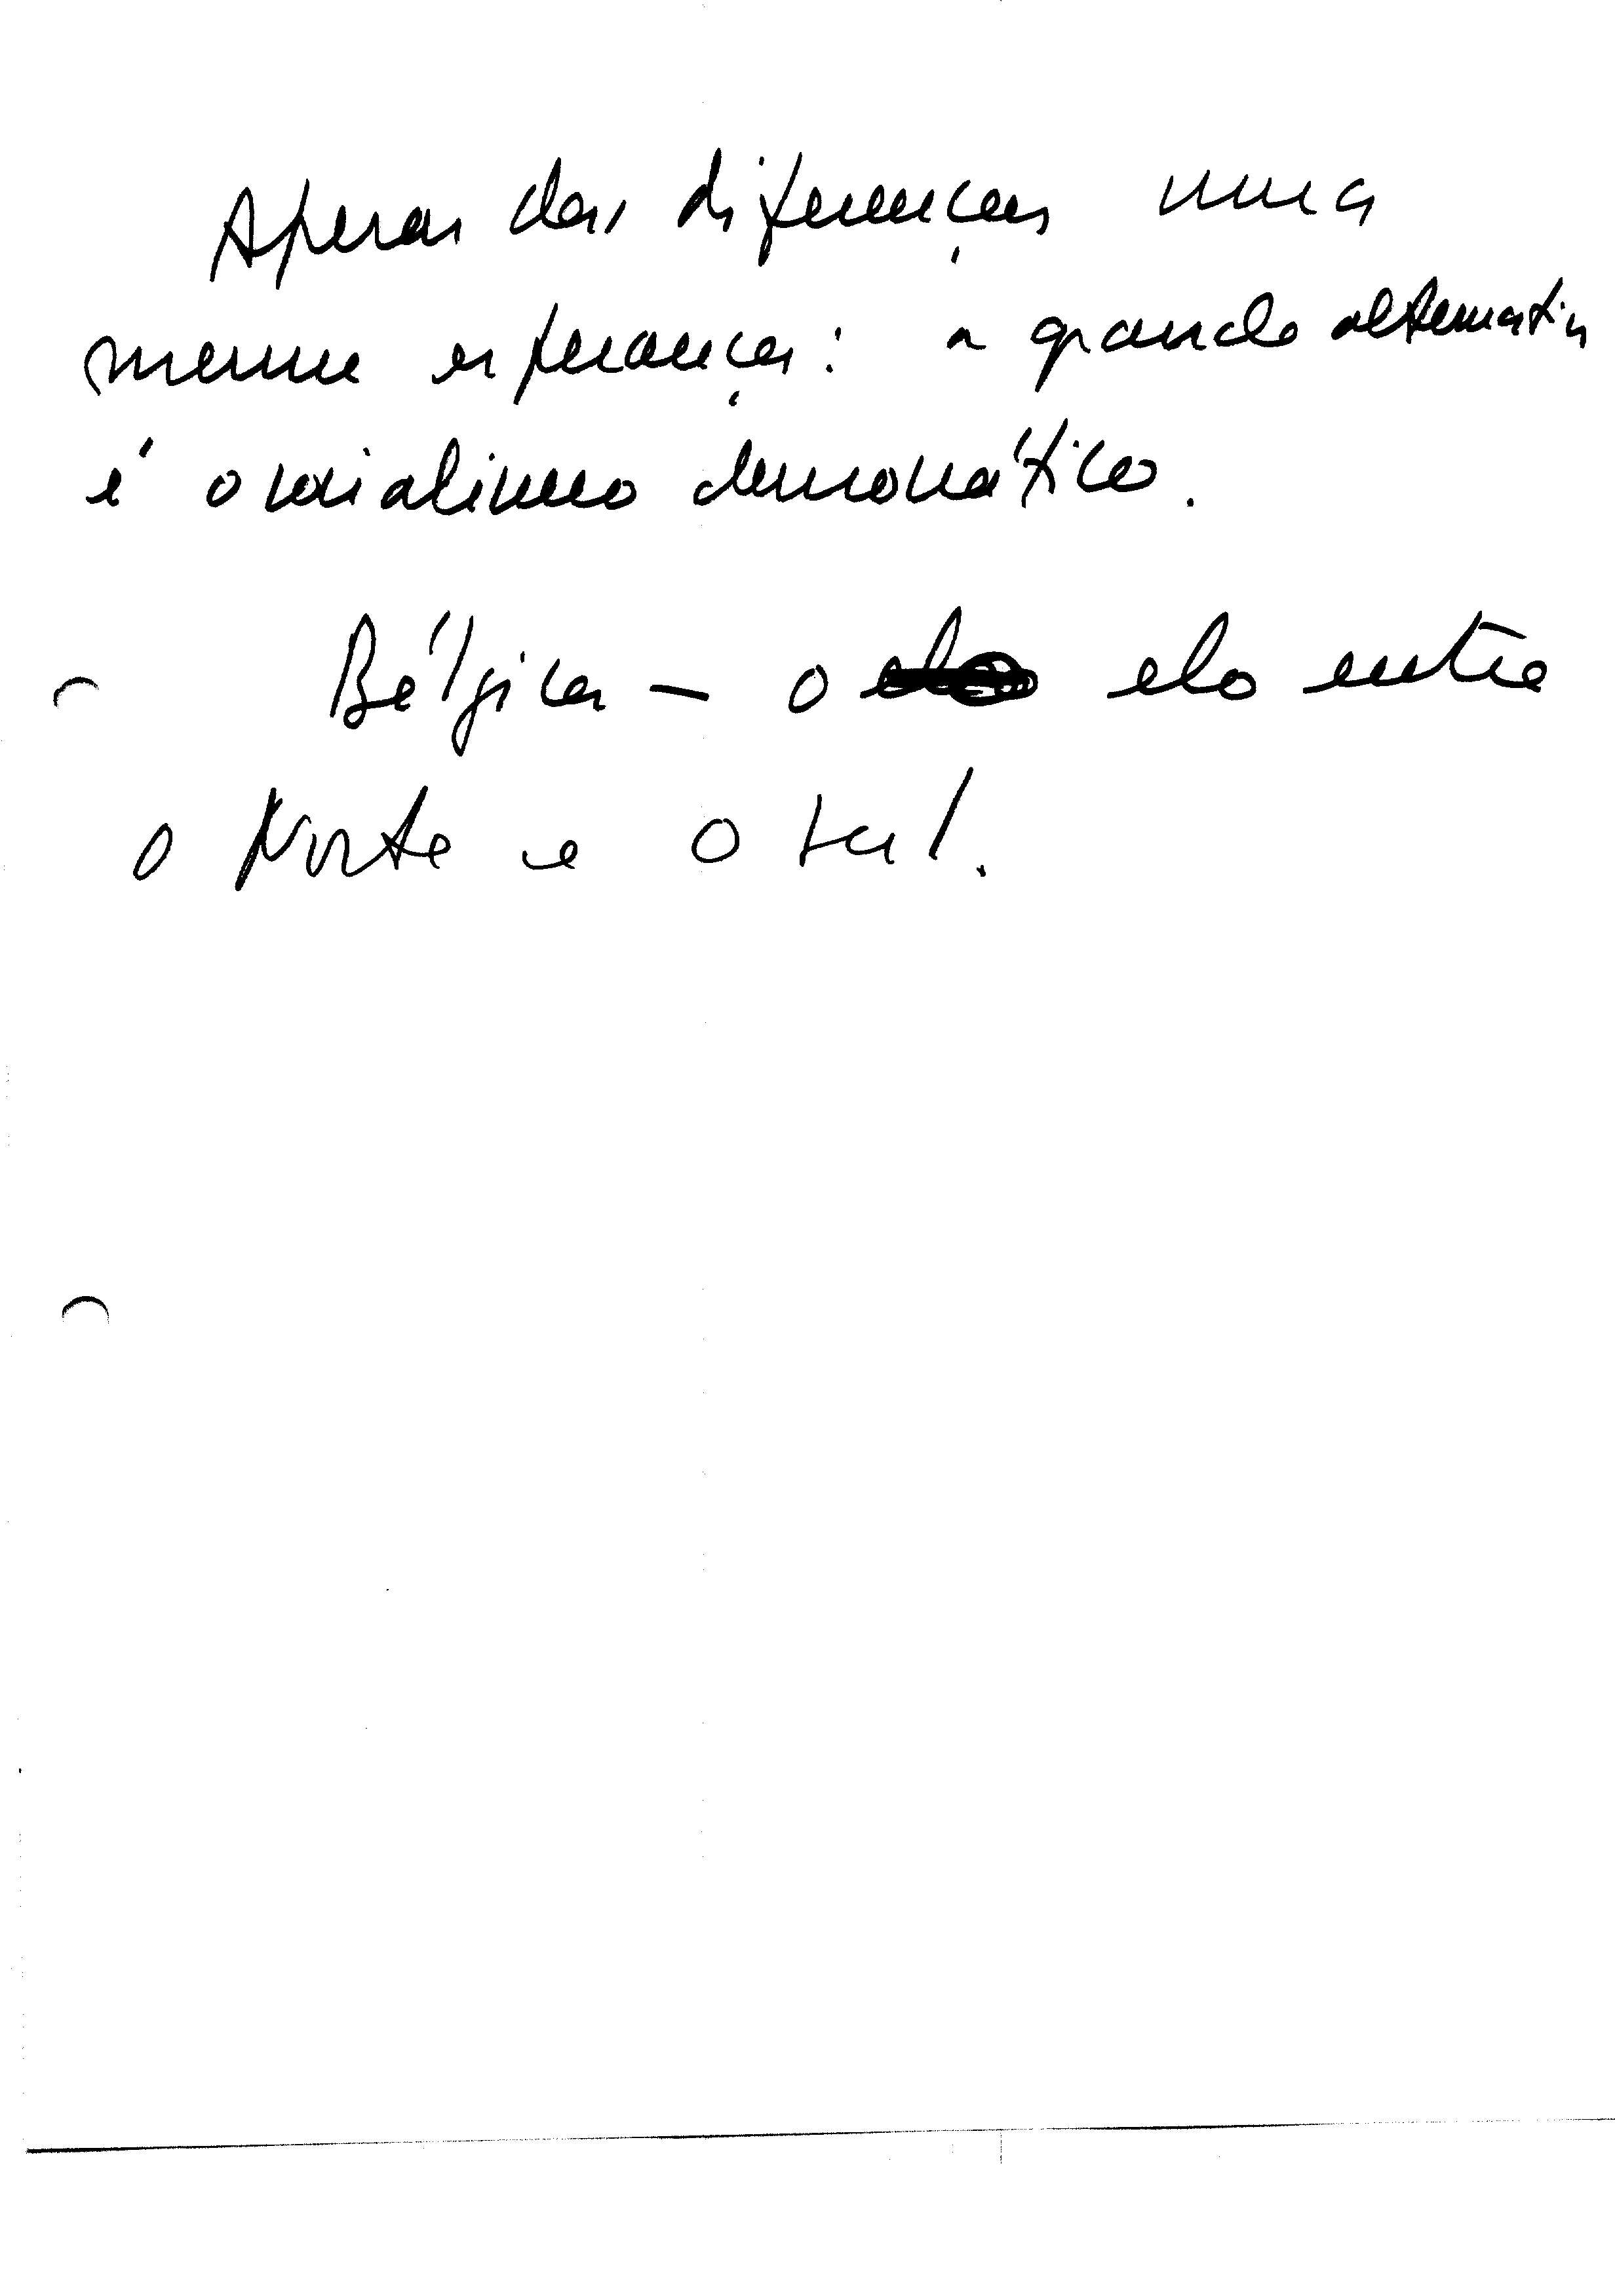 Apesar das diferenças uma
mesma esperança: a grande alternativa
é o socialismo democrático.
Bélgica — o elo entre
o Norte e o Sul.